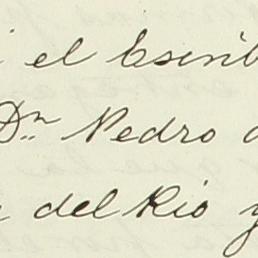 i el Escrib
Dn. Pedro d
del Rio y